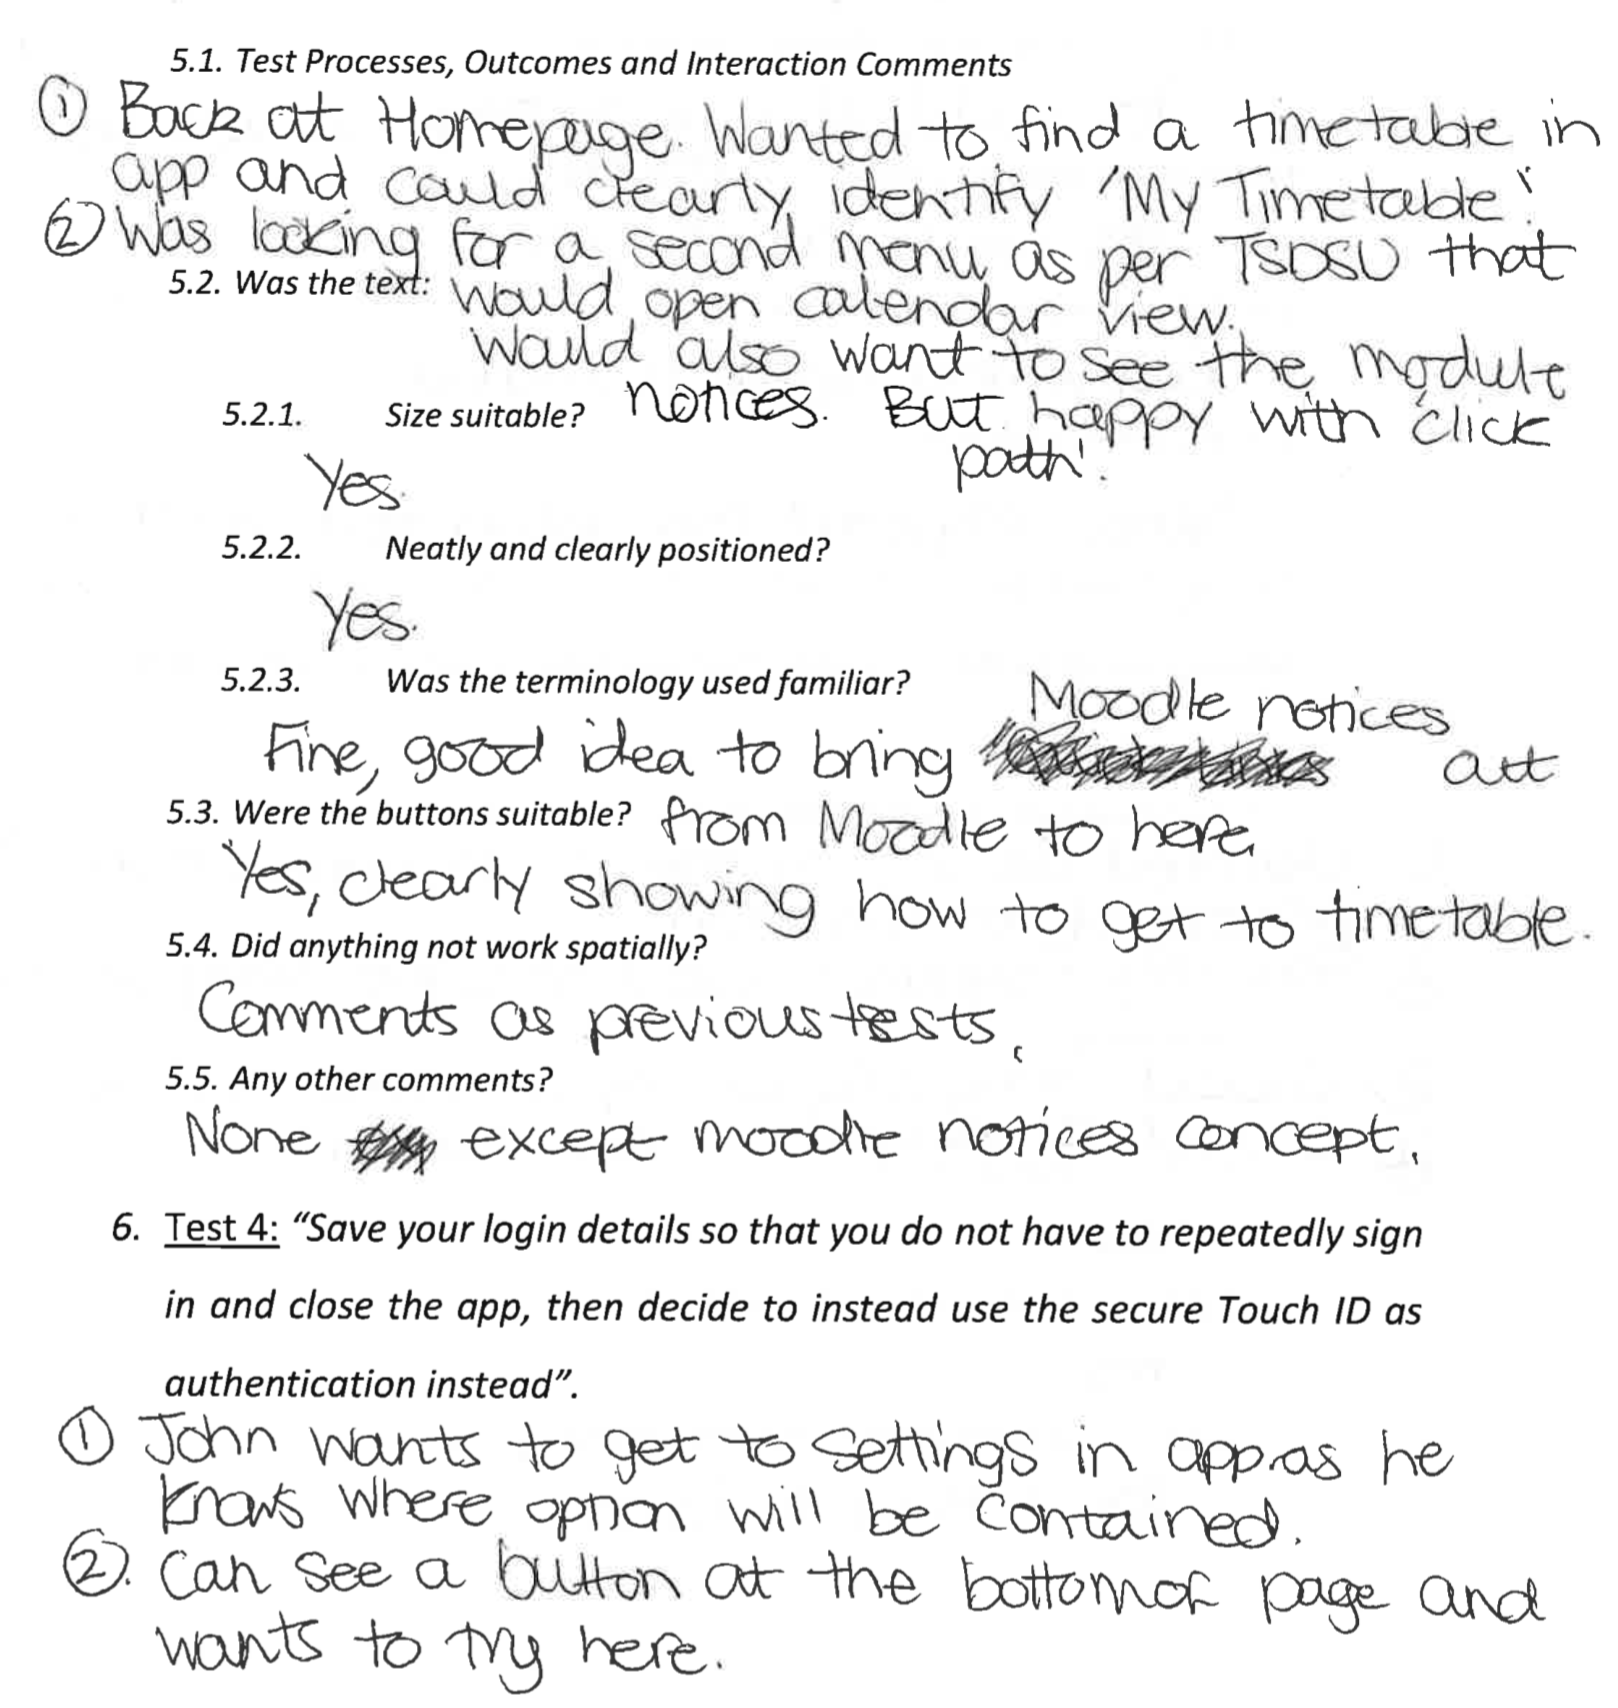 5.1. Test Processes, Outcomes and Interaction Comments
① Back at Homepage. Wanted to find a timetable in
app and could clearly identify 'My Timetable'.
② Was looking for a second menu as per TSDSU that
5.2. Was the text: would open calendar view.
Would also want to see the module
5.2.1. Size suitable? notices. But happy with 'click
path'.
Yes.
5.2.2. Neatly and clearly positioned?
Yes.
5.2.3. Was the terminology used familiar?
Moodle notices
Fine, good idea to bring out
5.3. Were the buttons suitable? from Moodle to here.
Yes, clearly showing how to get to timetable.
5.4. Did anything not work spatially?
Comments as previous tests.
5.5. Any other comments?
None except moodle notices concept.
6. Test 4: “Save your login details so that you do not have to repeatedly sign
in and close the app, then decide to instead use the secure Touch ID as
authentication instead”.
① John wants to get to settings in app as he
knows where option will be contained.
②. Can see a button at the bottom of page and
wants to try here.